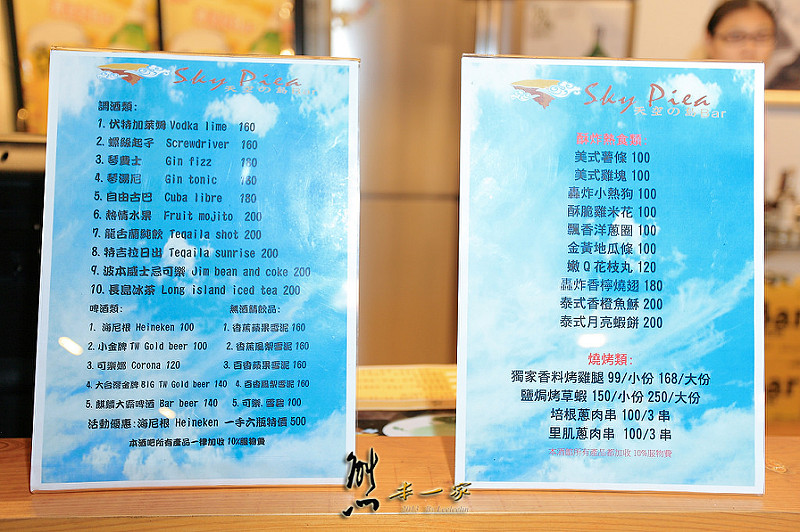 Sky Piea
天空の島
調酒類:
1. 伏特加萊姆 Vodka lime 160
2. 螺絲起子 Screwdriver 160
3. 琴費士 Gin fizz 180
4. 琴湯尼 Gin tonic 180
5. 自由古巴 Cuba libre 180
6. 熱情水果 Fruit mojito 200
7. 龍舌蘭純飲 Teqaila shot 200
8. 特吉拉日出 Teqaila sunrise 200
9. 波本威士忌可樂 Jim bean and coke 200
10. 長島冰茶 Long island iced tea 200
啤酒類:
1. 海尼根 Heineken 100
2. 小金牌 TW Gold beer 100
3. 可樂娜 Corona 120
4. 大台灣金牌 BIG TW Gold beer 140
5. 麒麟大霸啤酒 Bar beer 140
無酒精飲品:
1. 香蕉蘋果雪泥 160
2. 香蕉鳳梨雪泥 160
3. 百香蘋果雪泥 160
4. 百香鳳梨雪泥 160
5. 可樂.雪碧 100
活動優惠:海尼根 Heineken 一手六瓶特價 500
本酒吧所有產品一律加收 10%服物費
Sky Piea
天空の島Bar
美式薯條 100
美式雞塊 100
轟炸小熱狗 100
酥脆雞米花 100
飄香洋蔥圈 100
金黃地瓜條 100
嫩Q花枝丸 120
轟炸香檸燒翅 180
泰式香橙魚酥 200
泰式月亮蝦餅 200
燒烤類:
獨家香料烤雞腿 99/小份 168/大份
鹽焗烤草蝦 150/小份 250/大份
培根蔥肉串 100/3 串
里肌蔥肉串 100/3 串
本酒吧所有產品都加收 10%服物費
熊
半一家